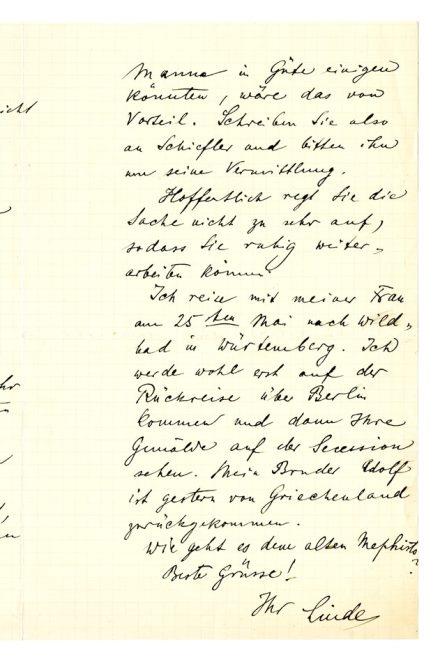 icht
Manne in Güte einigen
könnten, wäre das von
Vorteil. Schreiben Sie also
an Schiefler und bitten ihn
um seine Vermittlung.
Hoffentlich regt Sie die
Sache nicht zu sehr auf,
sodass Sie ruhig weiter-
arbeiten können.
Ich reise mit meiner Frau
am 25ten Mai nach Wild-
bad in Würtemberg. Ich
werde wohl erst auf der
Rückreise über Berlin
kommen und dann Ihre
Gemälde auf der Secession
sehen. Mein Bruder Adolf
ist gestern von Griechenland
zurückgekommen.
Wie geht es dem alten Mephisto?
Beste Grüsse!
Ihr Linde